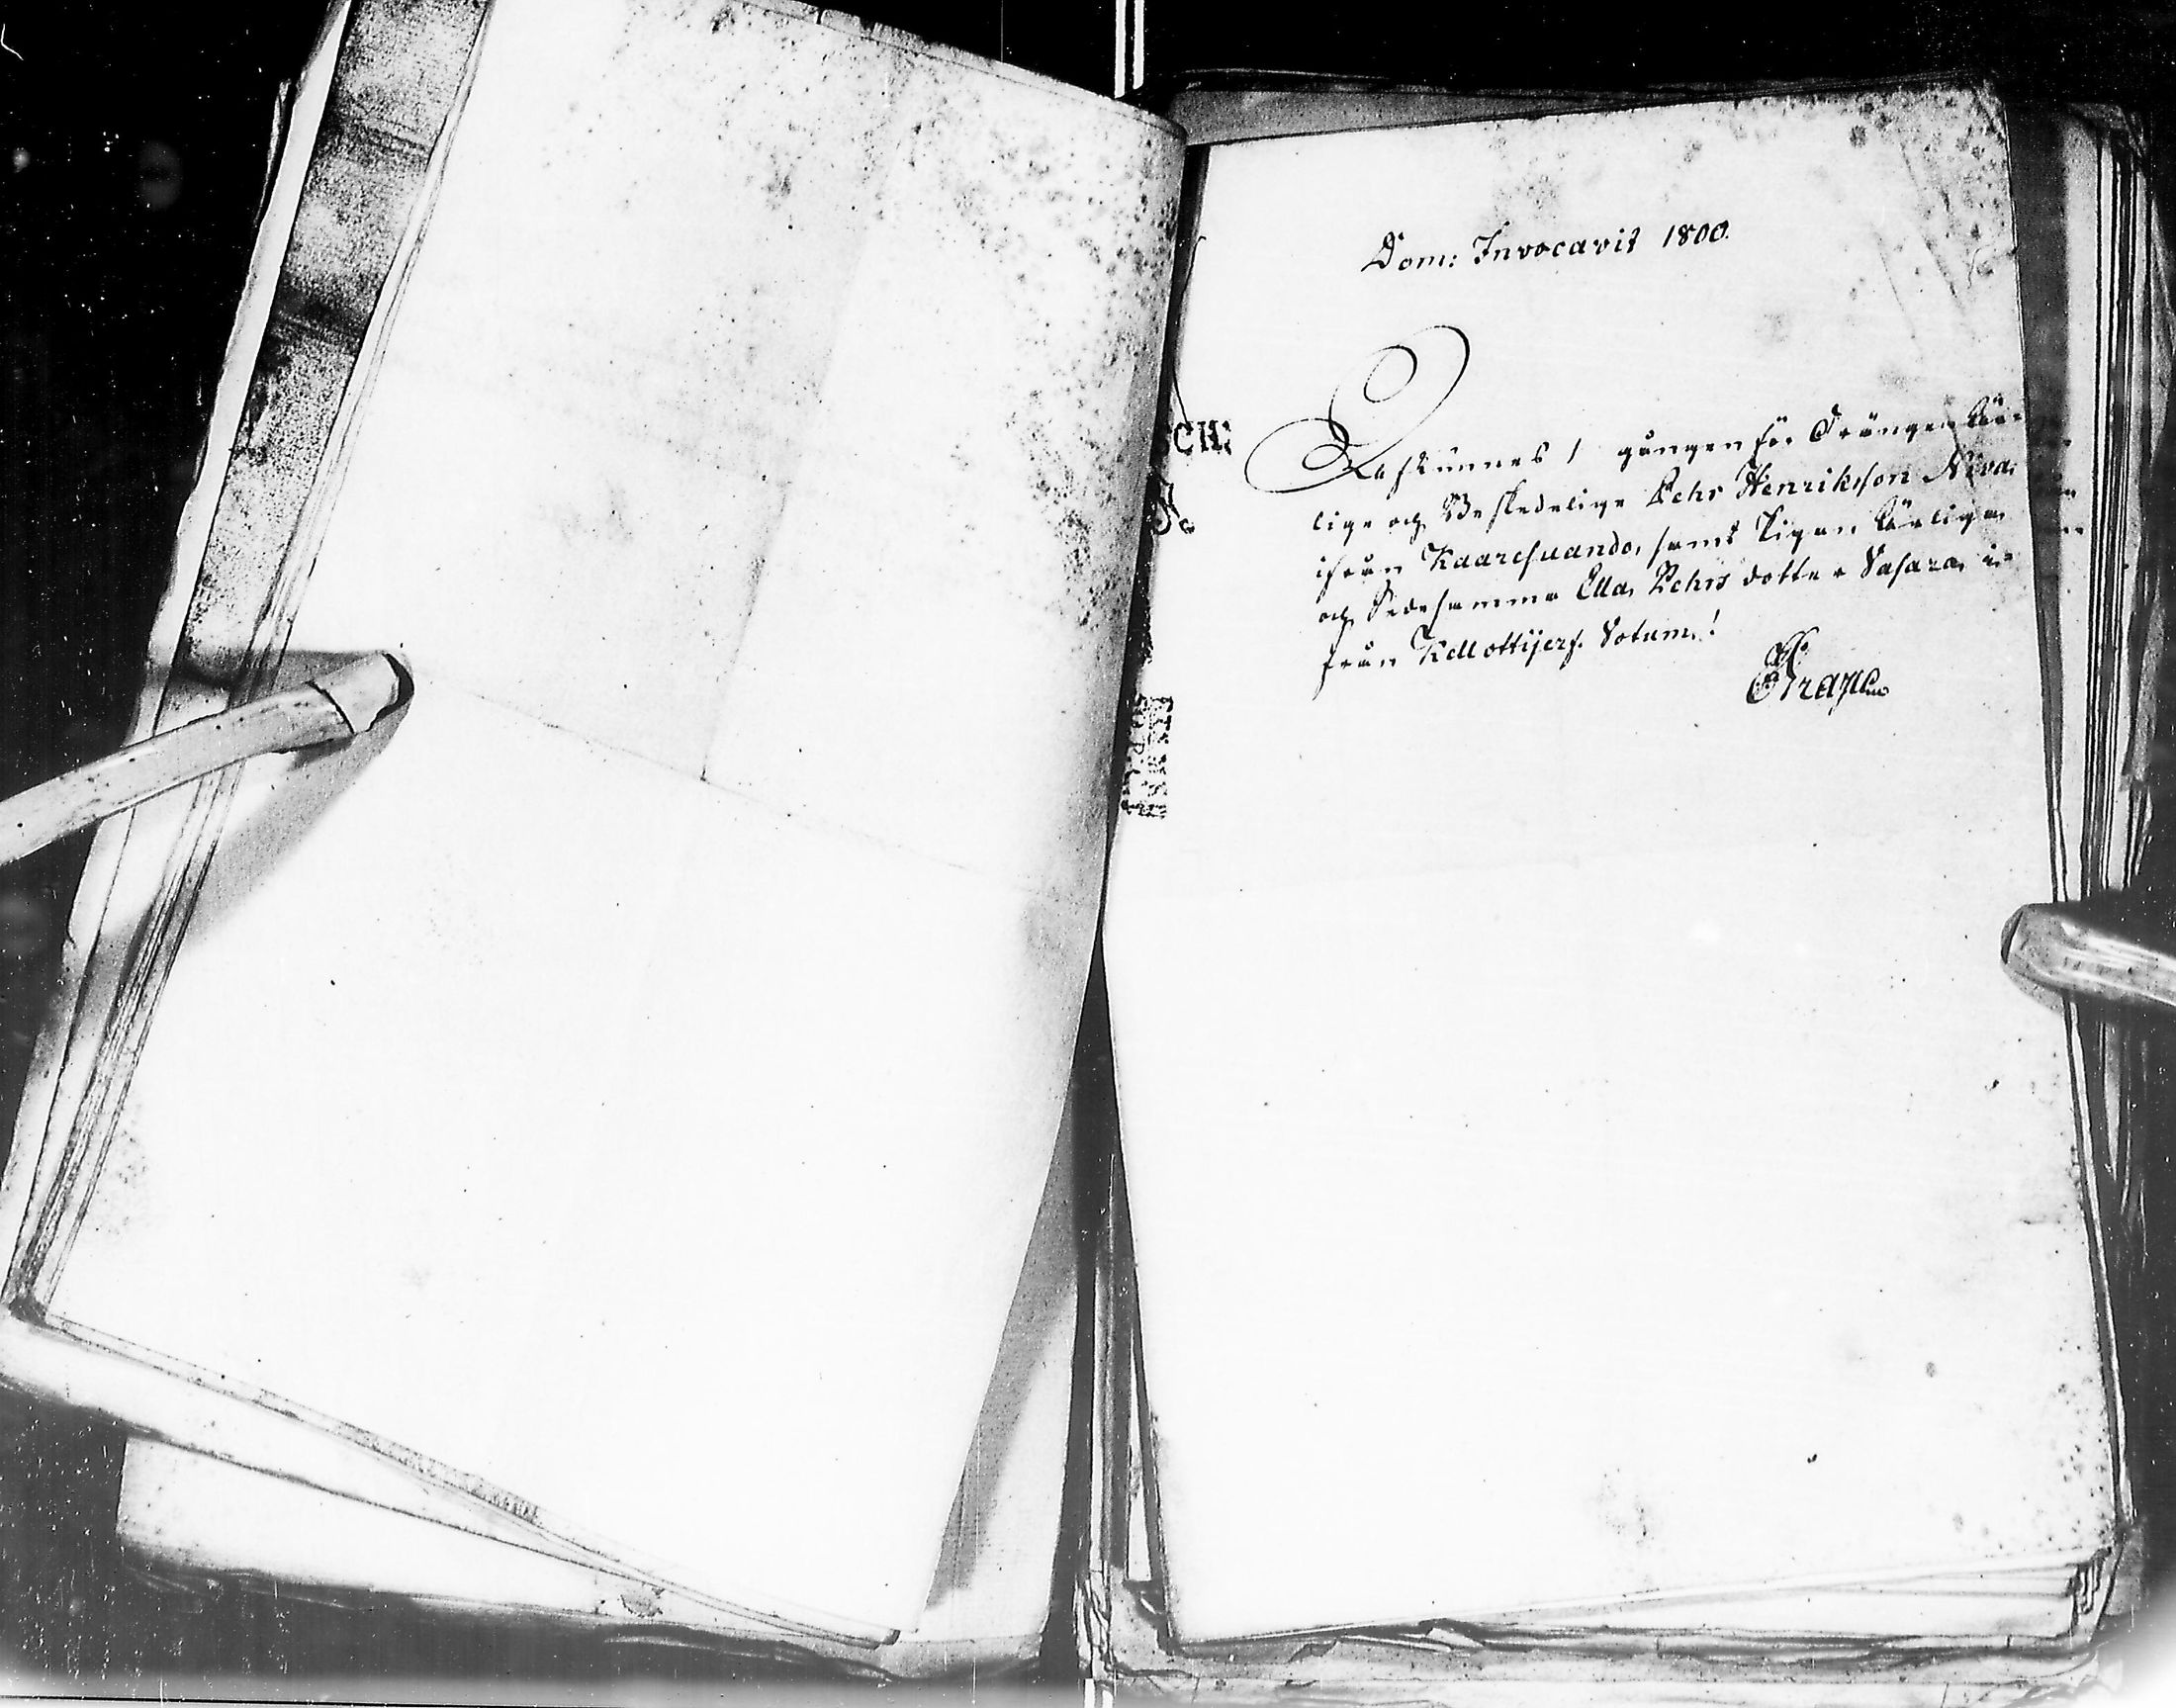 Dom: Invocavit 1800.
Afkunnes 1 gången för Drängen Ähr-
lige och Beskedelige Pehr Henriksson Niva
ifrån Kaaresuando, samt Pigan Ärliga
och Sedesamma Ella Pehrs dotter Vasara i-
från Kellottijerf. Votum!
CII: